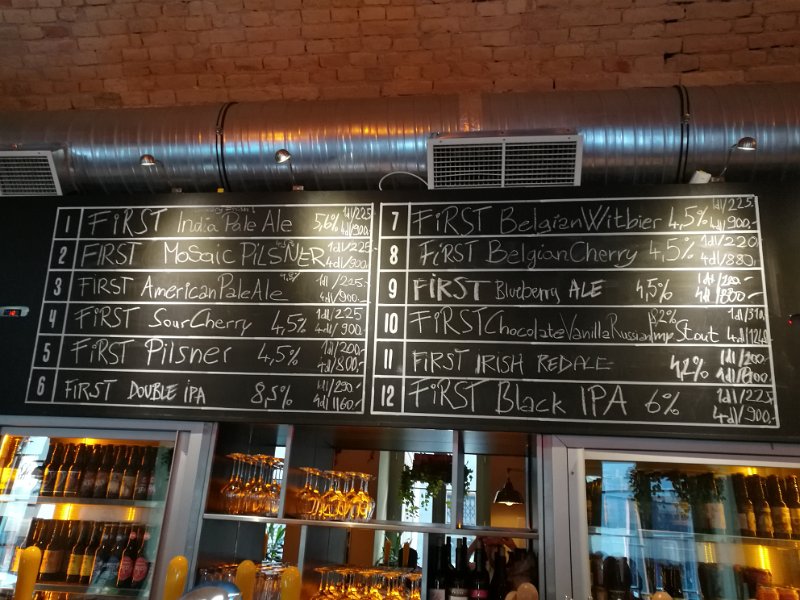 1 FiRST India Pale Ale 5,6% 1dl/225 4dl/900.-
2 FIRST Mosaic PILSNER 1dl/225 4dl/900.-
3 FIRST American Pale Ale 1dl/225 4dl/900.-
4 FiRST Sour Cherry 4,5% 1dl/225 4dl/900
5 FiRST Pilsner 4,5% 1dl/200 4dl/800.-
6 FiRST DOUBLE iPA 8,5% 1dl/290- 4dl/1160.-
7 FiRST Belgian Witbier 4,5% 1dl/225 4dl/900.-
8 FiRST Belgian Cherry 4,5% 1dl/220 4dl/880.-
9 FiRST Blueberry ALE 4,5% 4dl/800.-
10 FiRST Chocolate Vanilla Russian Imp. Stout 1dl/310 4dl/1240
11 FiRST IRISH RED ALE 1dl/200-
12 FiRST Black IPA 6% 1dl/225 4dl/900.-